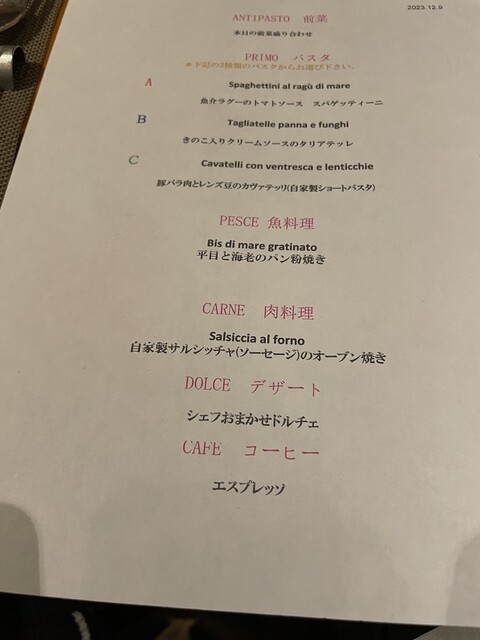 2023.12.9
ANTIPASTO 前菜
本日の前菜盛り合わせ
PRIMO パスタ
※下記の3種類のパスタからお選び下さい。
A Spaghettini al ragù di mare
魚介ラグーのトマトソース スパゲッティーニ
B Tagliatelle panna e funghi
きのこ入りクリームソースのタリアテッレ
C Cavatelli con ventresca e lenticchie
豚バラ肉とレンズ豆のカヴァテッリ(自家製ショートパスタ)
PESCE 魚料理
Bis di mare gratinato
平目と海老のパン粉焼き
CARNE 肉料理
Salsiccia al forno
自家製サルシッチャ(ソーセージ)のオーブン焼き
DOLCE デザート
シェフおまかせドルチェ
CAFE コーヒー
エスプレッソ